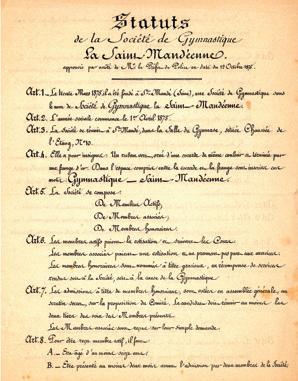 Statuts
de la Société de Gymnastique
La Saint-Mandéenne.
approuvés par arrêté de Mr le Préfet de Police en date du 12 Octobre 187
Art. 1. Le 1875 il a été fondé à St Mandé (Seine), une Société de Gymnastique sous
le nom de Société de Gymnastique la Saint-Mandéenne.
Art. 2. L'année sociale commence le 1er Avril 1875.
Art. 3. La Société se réunit à St Mandé, dans la Salle du Gymnase, Chaussée de
l'Etang, No 10.
Art. 4. Elle a pour insigne: Un ruban orné d'une cocarde de même couleur et terminé par une
frange d'or. Dans l'espace compris entre la cocarde et la frange sont inscrits ces
mots: Gymnastique _ Saint-Mandéenne.
Art. 5. La Société se compose:
De Membres Actifs,
De Membres associés,
De Membres honoraires.
Art. 6. Les membres actifs paient la cotisation et suivent les Cours.
Les membres associés paient une cotisation et ne prennent pas part aux exercices.
Les membres honoraires sont nommés à titre gracieux, en récompense de services
rendus soit à la Société soit à la cause de la Gymnastique.
Art. 7. Les admissions à titre de membres honoraires, sont votées en assemblée générale, au
scrutin secret, sur la proposition du Comité. Le candidat doit réunir au moins les
deux tiers des voix des Membres présents.
Les Membres associés sont reçus sur leur simple demande.
Art. 8. Pour être reçu membre actif, il faut:
A. _ Etre âgé d'au moins seize ans;
B. _ Etre présenté au moins avant l'admission par deux membres de la Société;